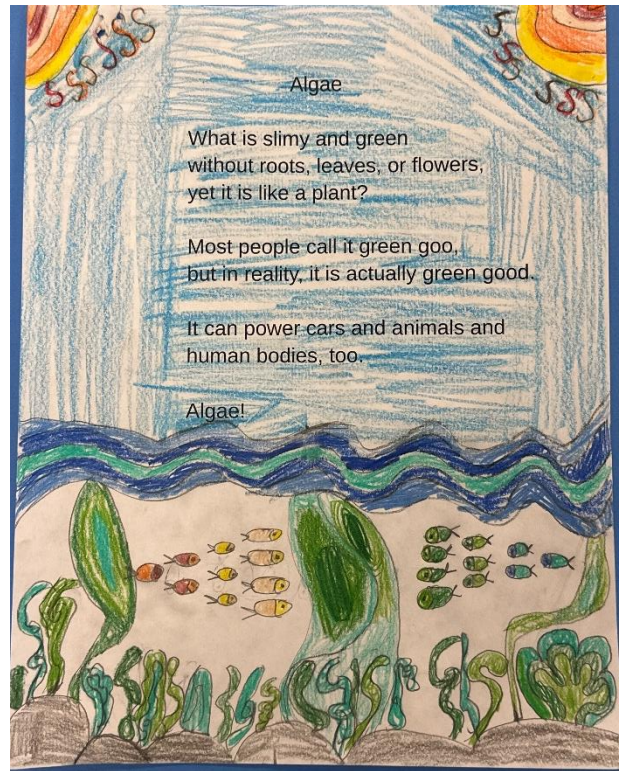 Algae
What is slimy and green
without roots, leaves, or flowers,
yet it is like a plant?
Most people call it green goo,
but in reality, it is actually green good.
It can power cars and animals and
human bodies, too.
Algae!